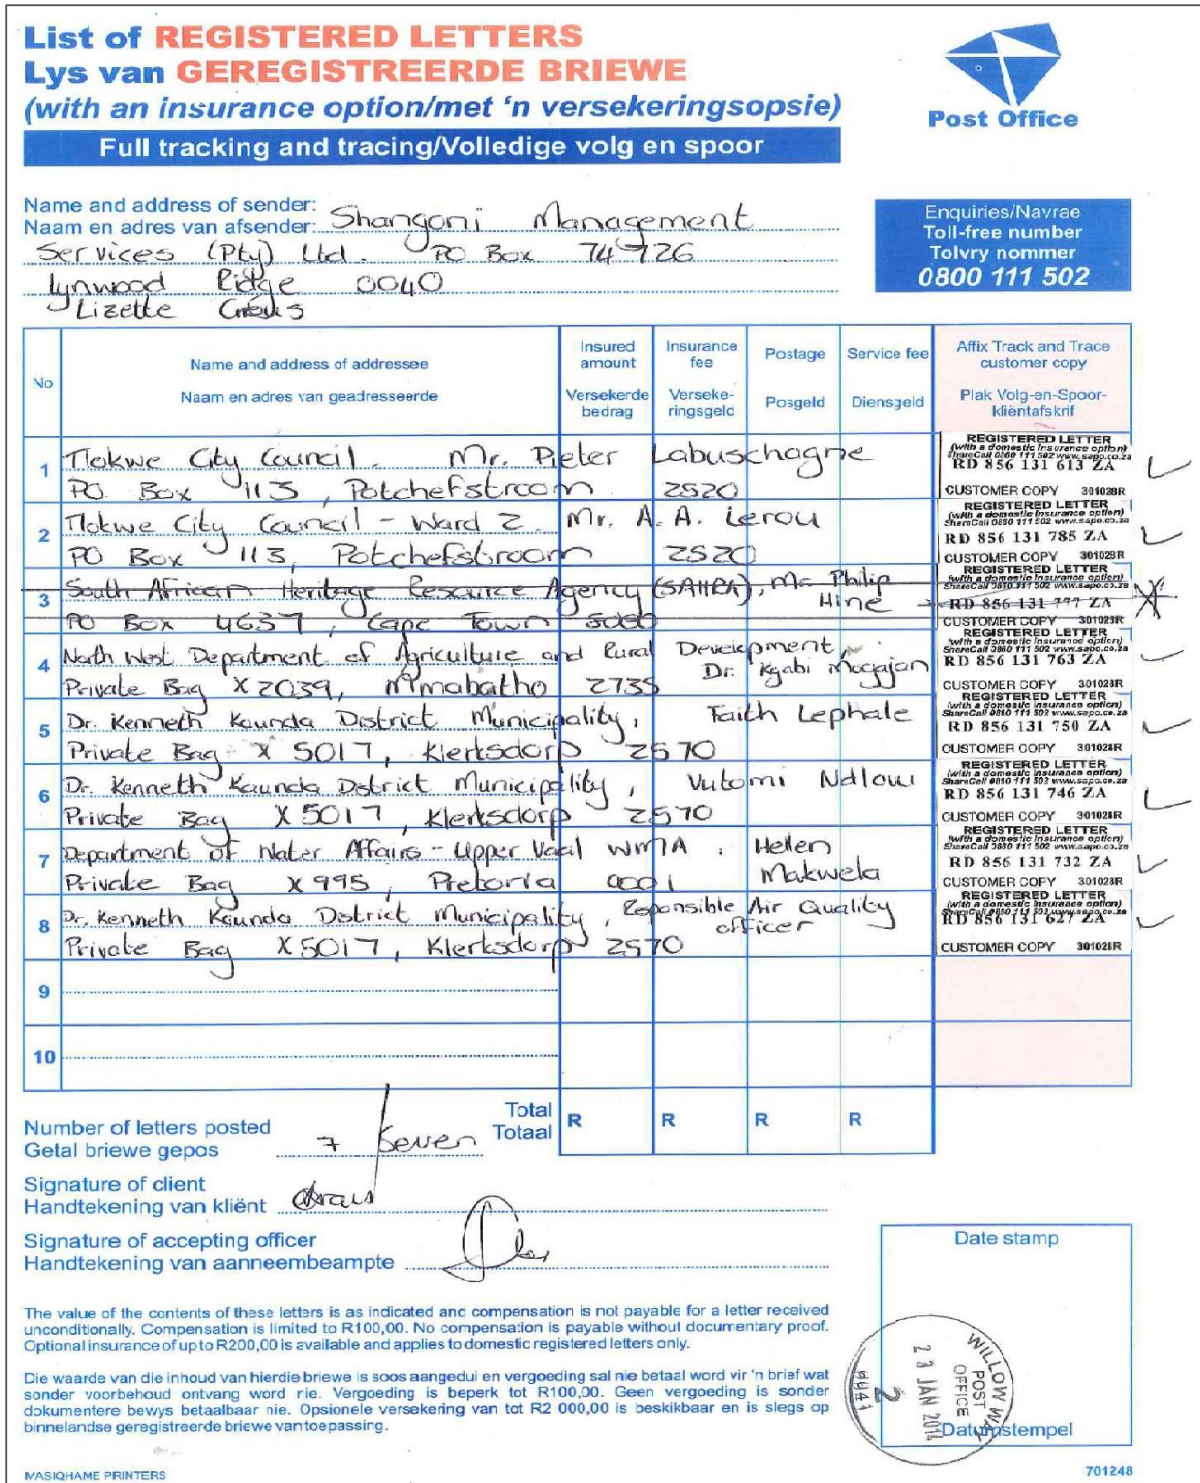 List of REGISTERED LETTERS
Lys van GEREGISTREERDE BRIEWE
(with an insurance option/met 'n versekeringsopsie)
Full tracking and tracing/Volledige volg en spoor
Post Office
Name and address of sender:
Naam en adres van afsender: Shangoni Management
Services (Pty) Ltd. PO Box 74726
Lynwood Ridge 0040
Lizette
Enquiries/Navrae
Toll-free number
Tolvry nommer
0800 111 502
No
Name and address of addressee
Naam en adres van geadresseerde
Insured amount
Versekerde bedrag
Insurance fee
Verseke-ringsgeld
Postage
Posgeld
Service fee
Diensgeld
Affix Track and Trace customer copy
Plak Volg-en-Spoor-kliëntafskrif
1 Tlokwe City Council. Mr. Pieter Labuschagne
PO Box 113, Potchefstroom 2520
REGISTERED LETTER
(with a domestic insurance option)
ShareCall 0860 111 502 www.sapo.co.za
RD 856 131 613 ZA
CUSTOMER COPY 301028R
2 Tlokwe City Council - Ward 2. Mr. A. A. Lerou
PO Box 113, Potchefstroom 2520
REGISTERED LETTER
(with a domestic insurance option)
ShareCall 0860 111 502 www.sapo.co.za
RD 856 131 785 ZA
CUSTOMER COPY 301028R
3 South African Heritage Resource Agency (SAHRA), Mr. Philip
Hine
PO Box 4637, Cape Town 8000
REGISTERED LETTER
(with a domestic insurance option)
ShareCall 0860 111 502 www.sapo.co.za
RD 856 131 777 ZA
CUSTOMER COPY 301028R
4 North West Department of Agriculture and Rural Development,
Dr. Kgabi Mogajan
Private Bag X2039, Mmabatho 2735
REGISTERED LETTER
(with a domestic insurance option)
ShareCall 0860 111 502 www.sapo.co.za
RD 856 131 763 ZA
CUSTOMER COPY 301028R
5 Dr. Kenneth Kaunda District Municipality, Faith Lephale
Private Bag X5017, Klerksdorp 2570
REGISTERED LETTER
(with a domestic insurance option)
ShareCall 0860 111 502 www.sapo.co.za
RD 856 131 750 ZA
CUSTOMER COPY 301028R
6 Dr. Kenneth Kaunda District Municipality, Vutomi Ndlovu
Private Bag X5017, Klerksdorp 2570
REGISTERED LETTER
(with a domestic insurance option)
ShareCall 0860 111 502 www.sapo.co.za
RD 856 131 746 ZA
CUSTOMER COPY 301028R
7 Department of Water Affairs - Upper Vaal WMA. Hellen
Makwela
Private Bag X995, Pretoria 0001
REGISTERED LETTER
(with a domestic insurance option)
ShareCall 0860 111 502 www.sapo.co.za
RD 856 131 732 ZA
CUSTOMER COPY 301028R
8 Dr. Kenneth Kaunda District Municipality, Responsible Air Quality
officer
Private Bag X5017, Klerksdorp 2570
REGISTERED LETTER
(with a domestic insurance option)
ShareCall 0860 111 502 www.sapo.co.za
RD 856 131 627 ZA
CUSTOMER COPY 301028R
9
10
Number of letters posted
Getal briewe gepos 7 Seven
Total
Totaal
R R R R
Signature of client
Handtekening van kliënt
Signature of accepting officer
Handtekening van aanneembeampte
Date stamp
The value of the contents of these letters is as indicated and compensation is not payable for a letter received
unconditionally. Compensation is limited to R100,00. No compensation is payable without documentary proof.
Optional insurance of up to R200,00 is available and applies to domestic registered letters only.
Die waarde van die inhoud van hierdie briewe is soos aangedui en vergoeding sal nie betaal word vir 'n brief wat
sonder voorbehoud ontvang word nie. Vergoeding is beperk tot R100,00. Geen vergoeding is sonder
dokumentere bewys betaalbaar nie. Opsionele versekering van tot R2 000,00 is beskikbaar en is slegs op
binnelandse geregistreerde briewe van toepassing.
WILLOW WAY
POST
OFFICE
23 JAN 2014
2
Datumstempel
MASIQHAME PRINTERS
701248